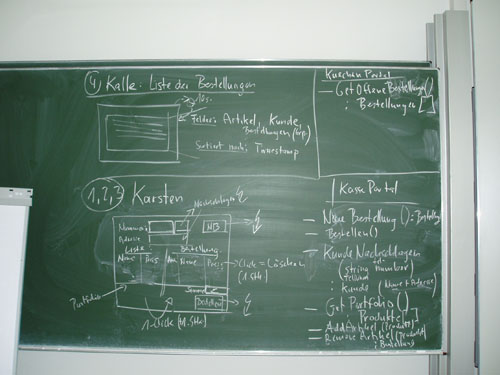 4) Kalle: Liste der Bestellungen
10s.
Felder: Artikel, Kunde,
Bestellungen
Sortiert nach: Timestamp
Kuchen Portal
– GetOffeneBestellungen()
: Bestellungen []
1,2,3 Karsten
Nachschlagen
Nummer:
NB
Adresse
Liste
Bestellung
Name Preis
Name Preis
Click = Löschen
(1 Stk)
Portfolio
Summe
Bestellen
1-Click [1 Stk]
Kasse Portal
– Neue Bestellung():Bestellung
– Bestellen()
– Kunde Nachschlagen
(string telnummer)
: Kunde (Name + Adresse)
– Get Portfolio()
: Produkte []
– AddArtikel (Produkt)
– Remove Artikel (Produkt)
: Bestellung